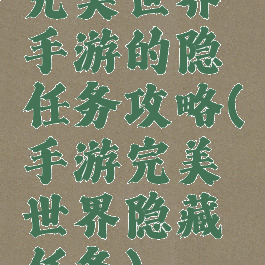 完美世界
手游的隐
任务攻略(
手游完美
世界隐藏
任务)